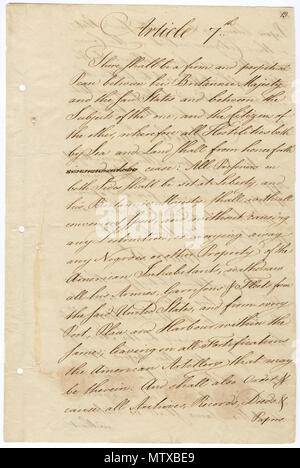 13
Article 7th
There shall be a firm and perpetual
Peace between his Britannic Majesty
and the said States and between the
Subjects of the one, and the Citizens of
the other, wherefore all Hostilities both
by Sea and Land shall from henceforth
cease: All Prisoners on
both Sides shall be set at Liberty, and
his Britannic Majesty shall with all
convenient Speed, and without causing
any Destruction, or carrying away
any Negroes, or other Property of the
American Inhabitants, withdraw
all his Armies, Garrisons & Fleets from
the said United States, and from every
Port, Place and Harbour within the
same; leaving in all Fortifications
the American Artillery that may
be therein. And shall also Order &
cause all Archives, Records, Deeds &
Papers
alamy
www.alamy.com - MTXBE9